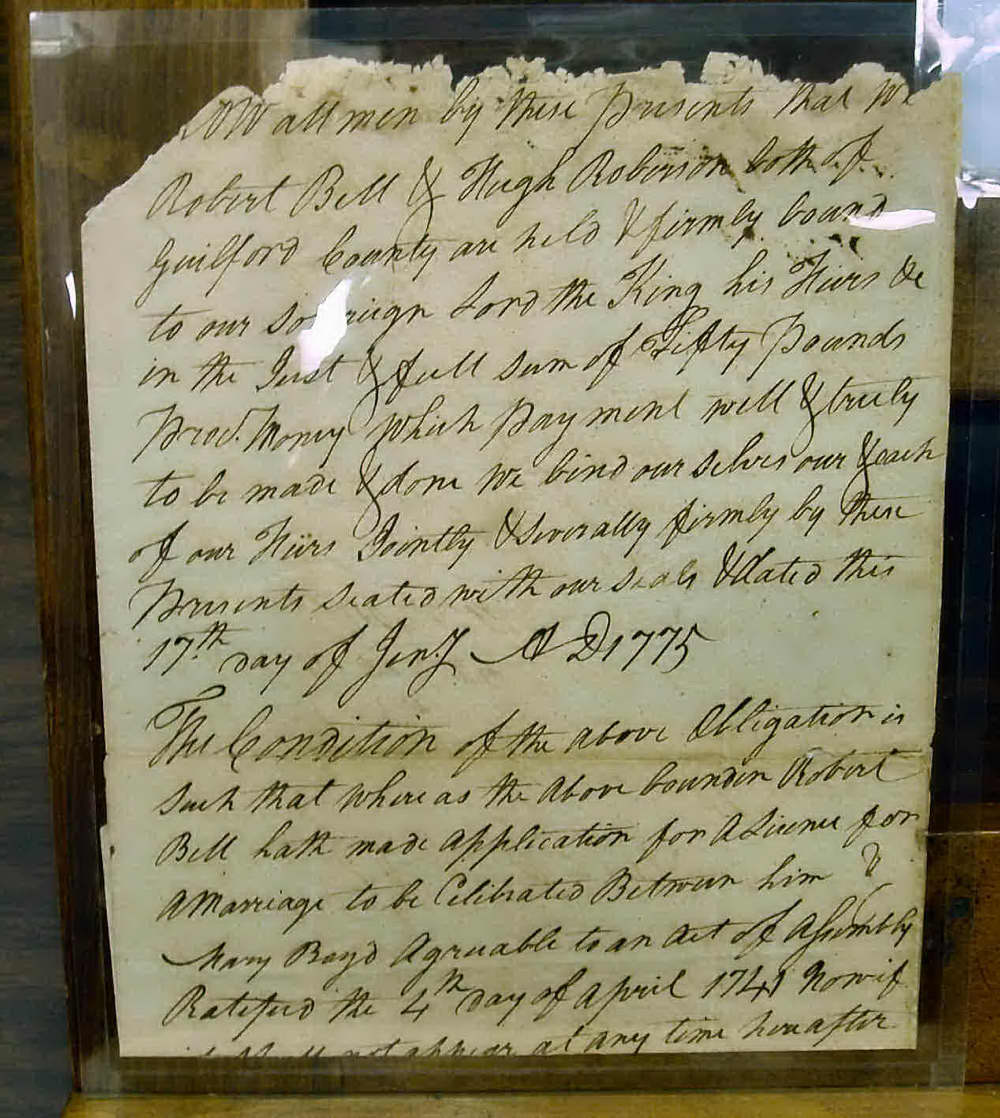 now all men by these Presents that we
Robert Bell & Hugh Roberson both of
Guilford County are held & firmly bound
to our Sovereign Lord the King his Heirs &c
in the Just & full sum of Fifty Pounds
Proc. Money which Payment well & truly
to be made & done we bind our selves our & each
of our Heirs Jointly & Severally firmly by these
Presents Sealed with our Seals & Dated this
17th day of Jen.y A D 1775
The Condition of the above Obligation is
Such that where as the Above bounden Robert
Bell hath made Application for A Licence for
A Marriage to be Celibrated Between him &
Mary Boyd Agreeable to an Act of Assembly
Ratefied the 4th day of April 1741 Now if
it shall not appear at any time hereafter